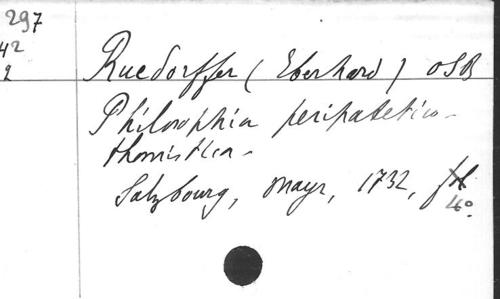 297
42
2
Ruedorffer (Eberhard) OSB
Philosophia peripatetico-
thomistica-
Salzbourg, Mayr, 1732,
4°.